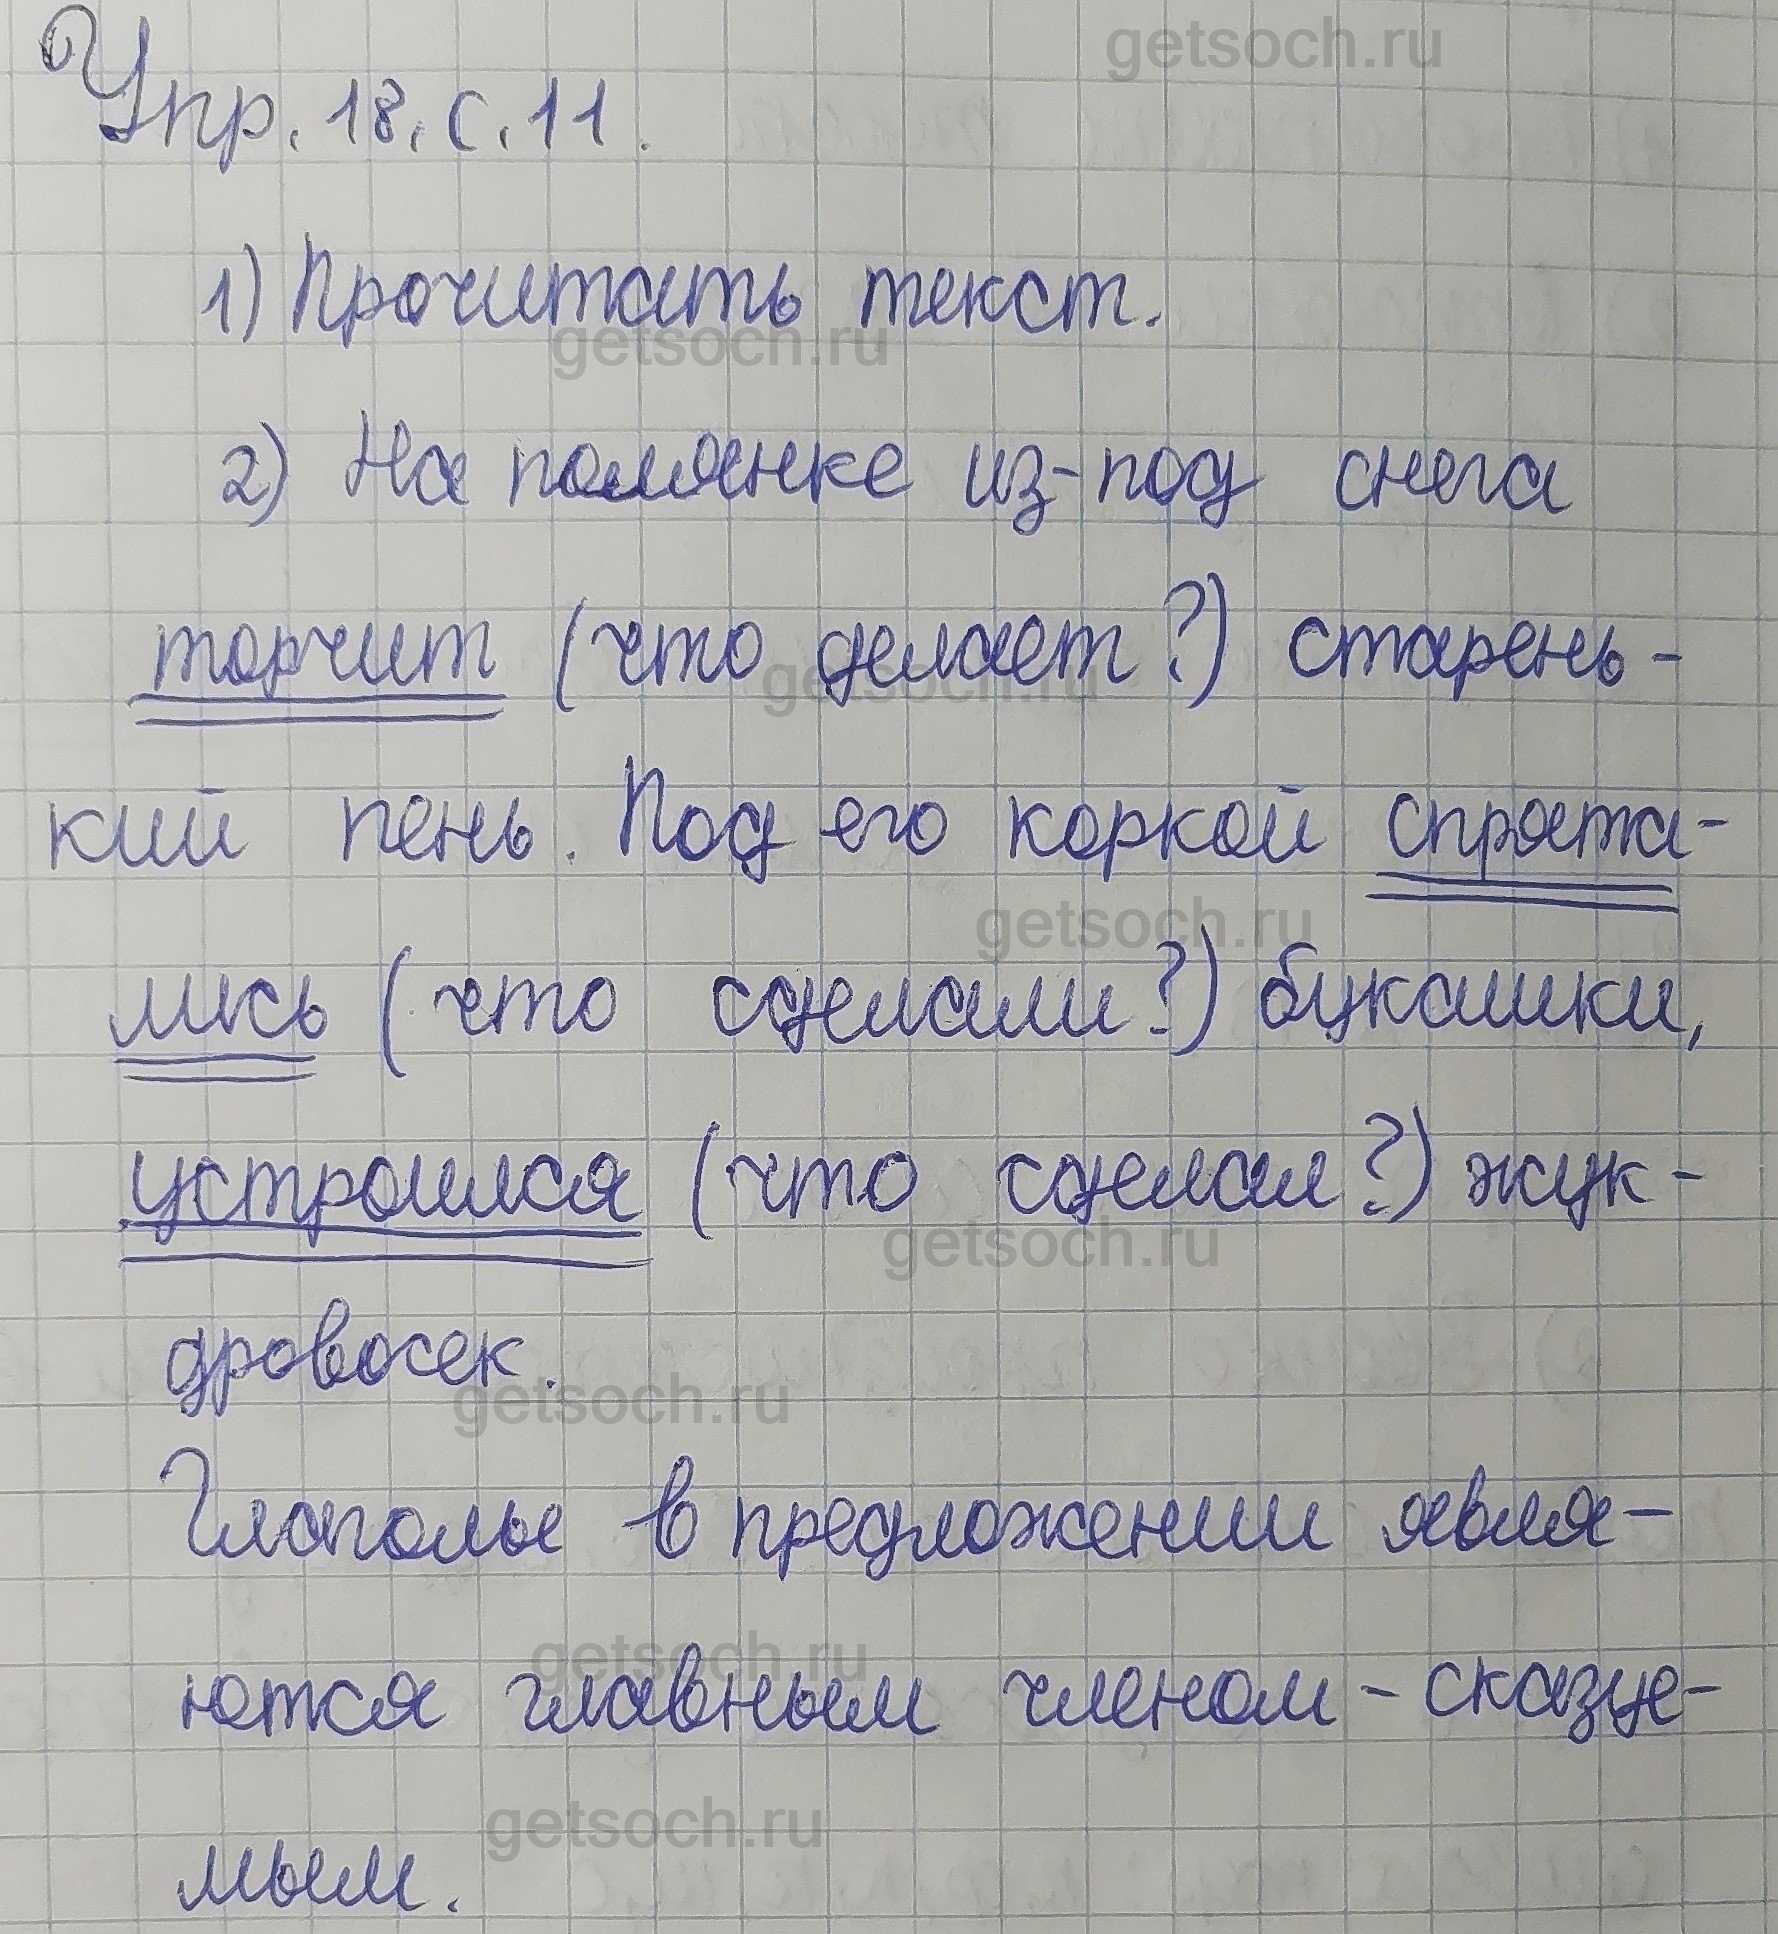 getsoch.ru
Упр. 18, с. 11.
1) Прочитать текст.
getsoch.ru
2) На полянке из-под снега
торчит (что делает?) старень-
getsoch.ru
кий пень. Под его коркой спрята-
getsoch.ru
лись (что сделали?) букашки,
устроился (что сделал?) жук-
getsoch.ru
дровосек.
getsoch.ru
Глаголы в предложении явля-
getsoch.ru
ются главным членом - сказуе-
getsoch.ru
мым.